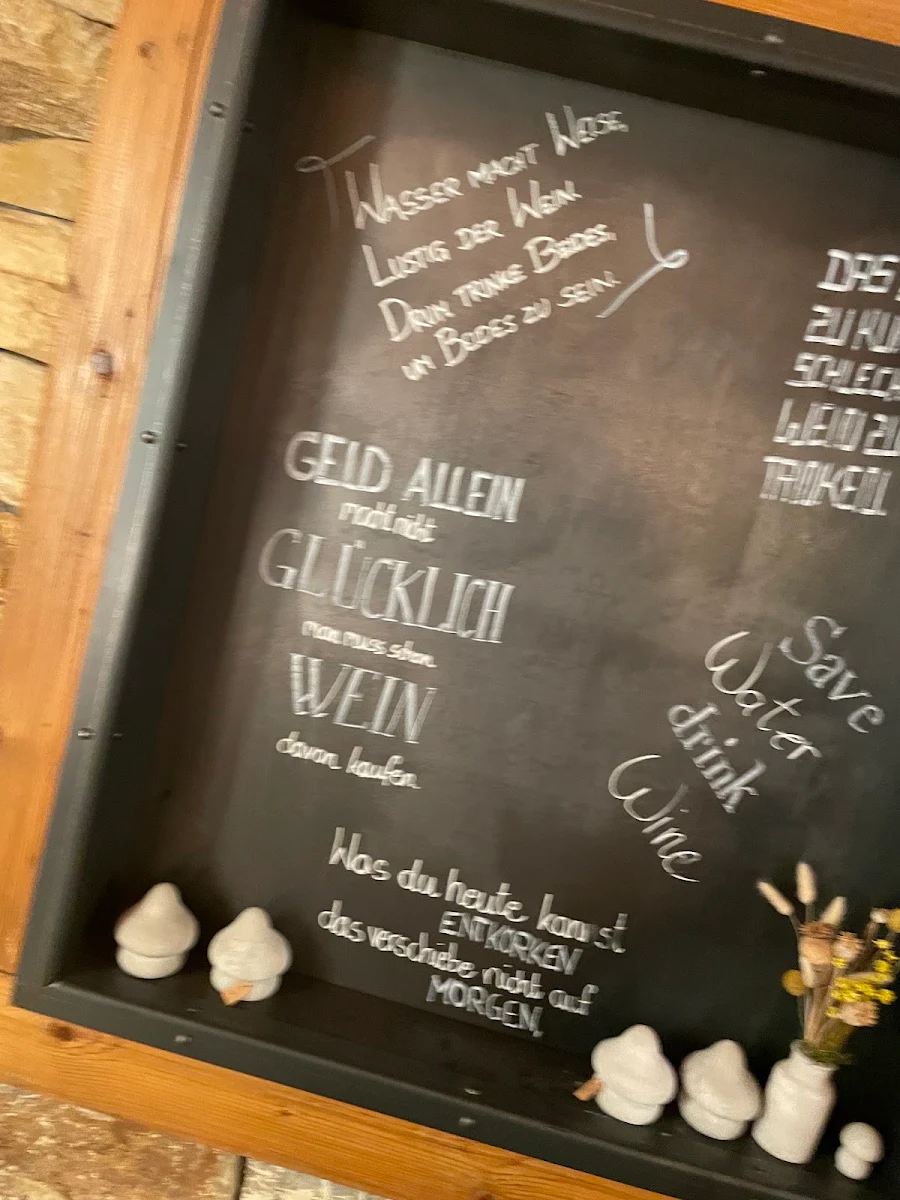 WASSER MACHT WEISE,
LUSTIG DER WEIN.
DRUM TRINKE BEIDES,
UM BEIDES ZU SEIN.
GELD ALLEIN
macht nicht
GLÜCKLICH
man muss schon
WEIN
davon kaufen.
Was du heute kannst
ENTKORKEN
das verschiebe nicht auf
MORGEN.
DAS
ZU KU
SCHLECH
WEIN ZU
TRINKEN.
Save
Water
drink
Wine